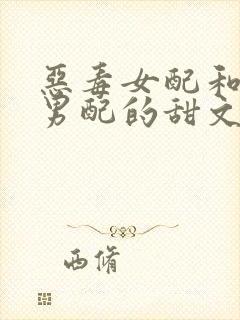 惡毒女配和
男配的甜文
西脩